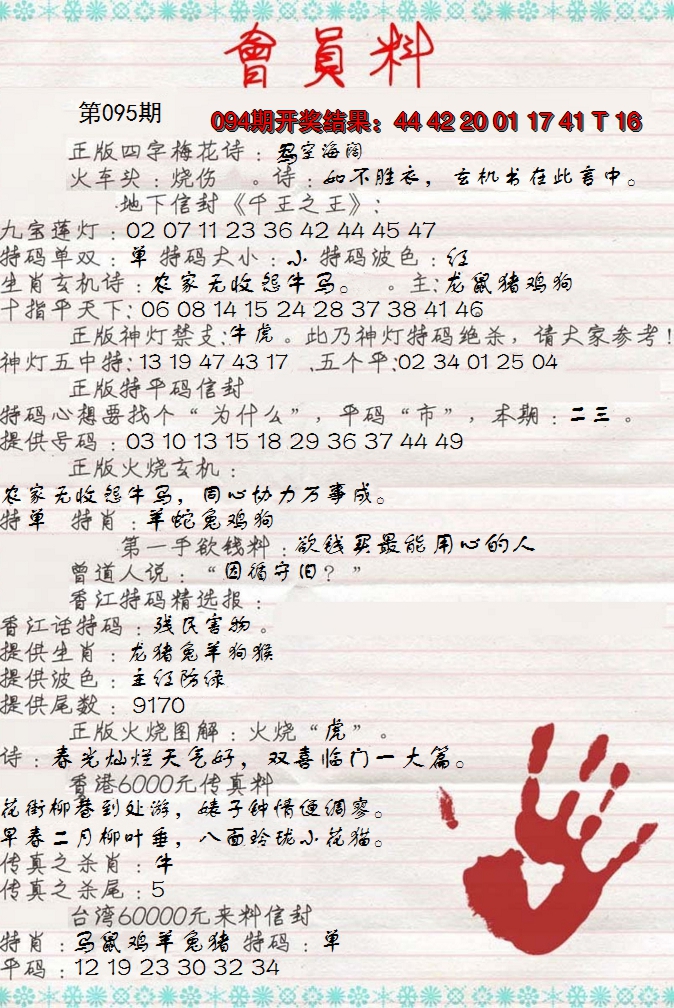 會員料
第095期
094期开奖结果：44 42 20 01 17 41 T 16
正版四字梅花诗：空海阔
火车头：烧伤 。诗：如不胜衣，玄机书在此言中。
地下信封《千王之王》：
九宝莲灯：02 07 11 23 36 42 44 45 47
特码单双：单 特码大小：小 特码波色：红
生肖玄机诗：农家无收怨牛马。 。主：龙鼠猪鸡狗
十指平天下：06 08 14 15 24 28 37 38 41 46
正版神灯禁支：牛虎。此乃神灯特码绝杀，请大家参考！
神灯五中特：13 19 47 43 17 .五个平：02 34 01 25 04
正版特平码信封
特码心想要找个“为什么”，平码“市”，本期：二三。
提供号码：03 10 13 15 18 29 36 37 44 49
正版火烧玄机：
农家无收怨牛马，同心协力万事成。
特单 特肖：羊蛇兔鸡狗
第一手欲钱料：欲钱买最能用心的人
曾道人说：“因循守旧？”
香江特码精选报：
香江话特码：残民害物。
提供生肖：龙猪兔羊狗猴
提供波色：主红防绿
提供尾数：9170
正版火烧图解：火烧“虎”。
诗：春光灿烂天气好，双喜临门一大篇。
香港6000元传真料
花街柳巷到处游，婊子钟情便绸寥。
早春二月柳叶垂，八面玲珑小花猫。
传真之杀肖：牛
传真之杀尾：5
台湾60000元来料信封
特肖：马鼠鸡羊兔猪 特码：单
平码：12 19 23 30 32 34